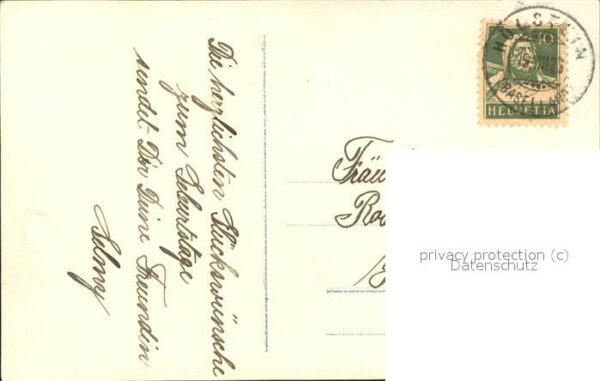 Die herzlichsten Glückwünsche
zum Geburtstage
sendet Dir Deine Freundin
Selmy
HÖLSTEIN
(BASELLAND)
HELVETIA
Fräu
privacy protection (c)
Datenschutz